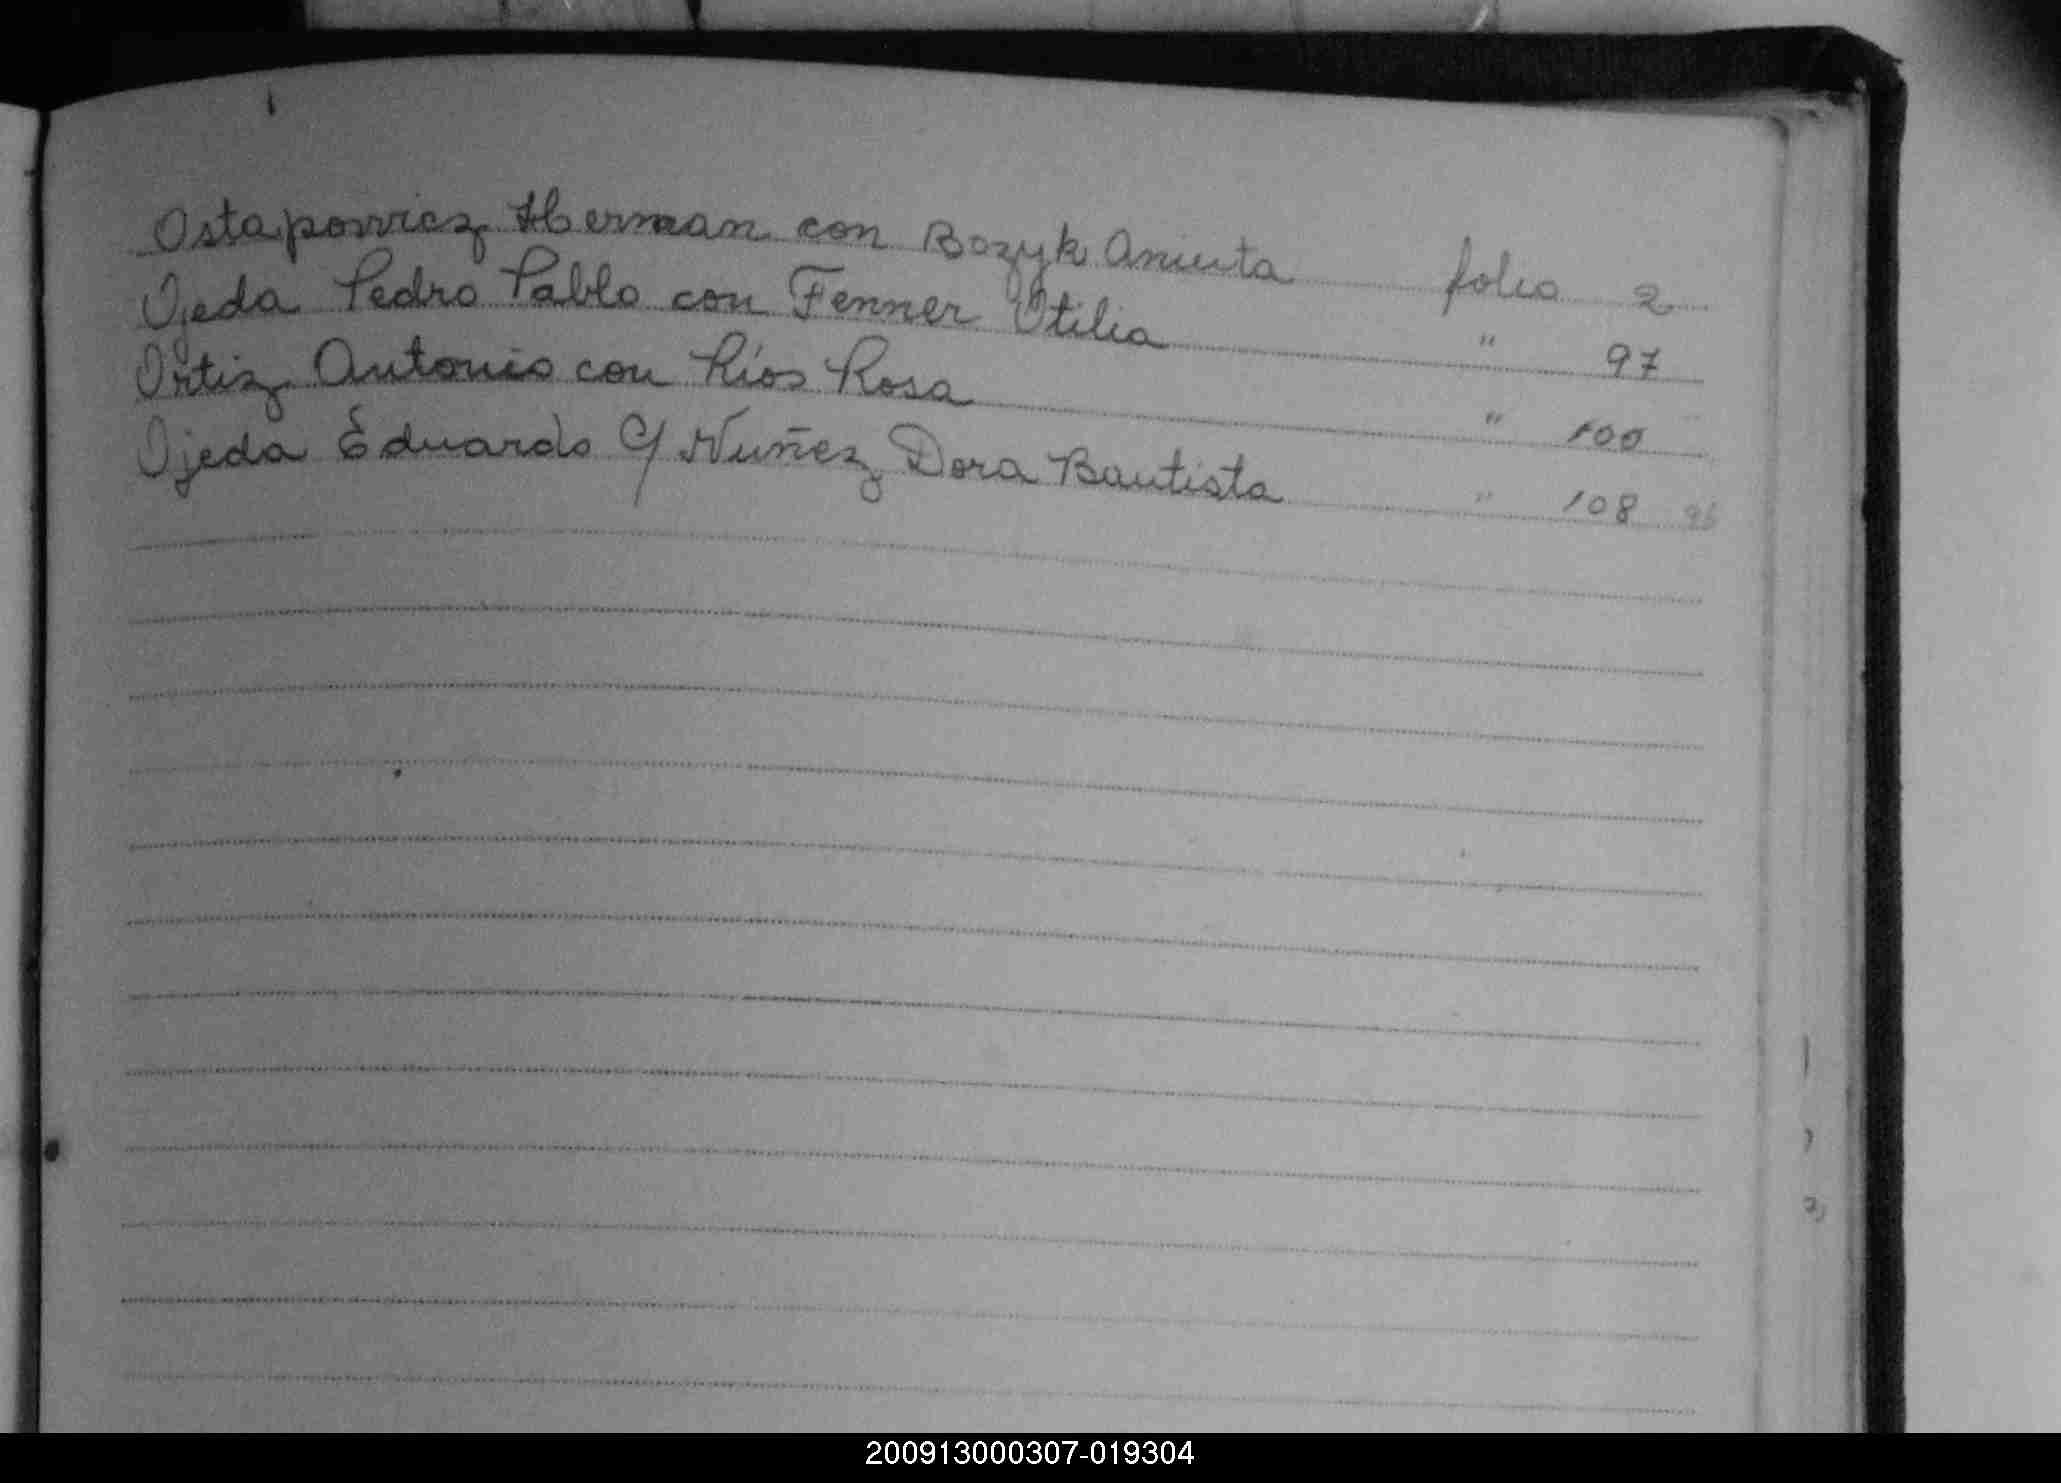 Ostapowicz Herman con Bozyk Aniuta folio 2
Ojeda Pedro Pablo con Fenner Otilia " 97
Ortiz Antonio con Ríos Rosa " 100
Ojeda Eduardo c/ Nuñez Dora Bautista " 108
200913000307-019304